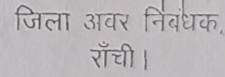 जिला अवर निबंधक,
राँची।